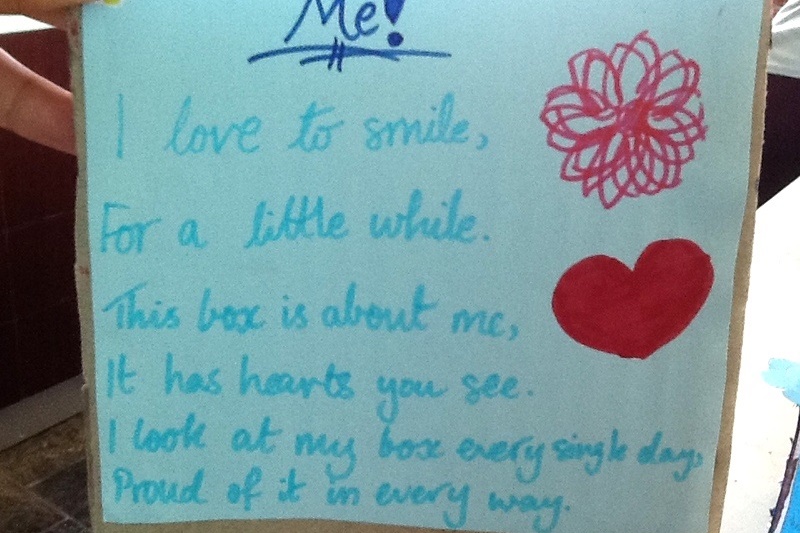 Me!
I love to smile,
For a little while.
This box is about me,
It has hearts you see.
I look at my box every single day,
Proud of it in every way.